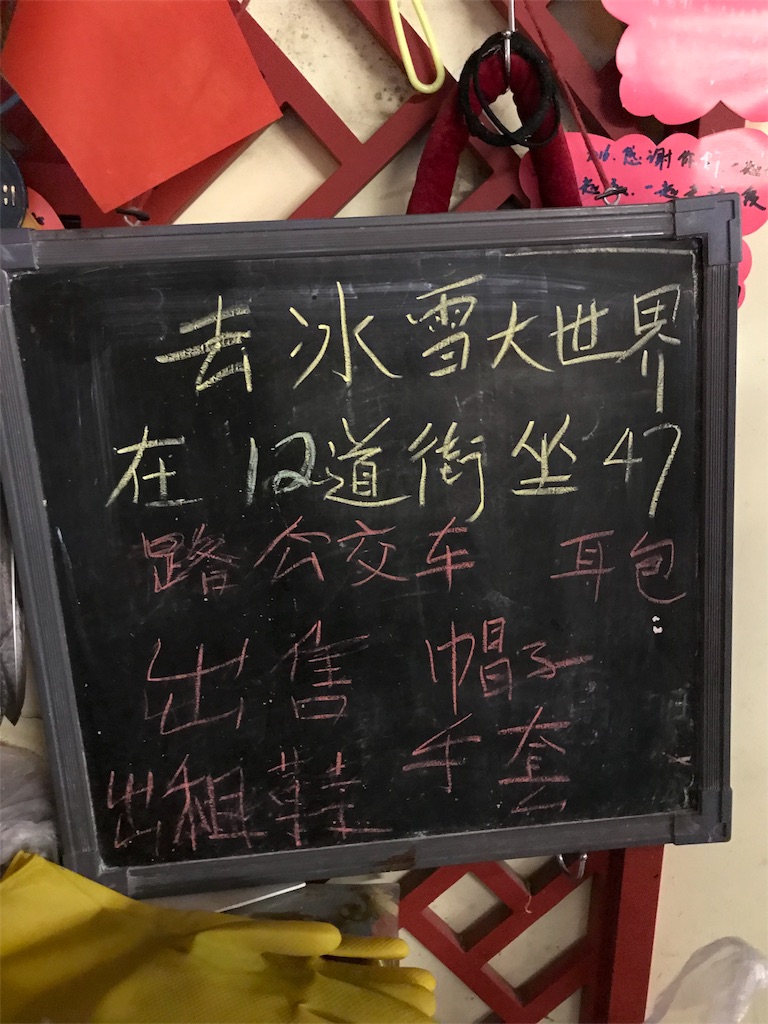 感谢你们一起
去冰雪大世界
在12道街坐47
路公交车 耳包
出售 帽子
手套
出租鞋